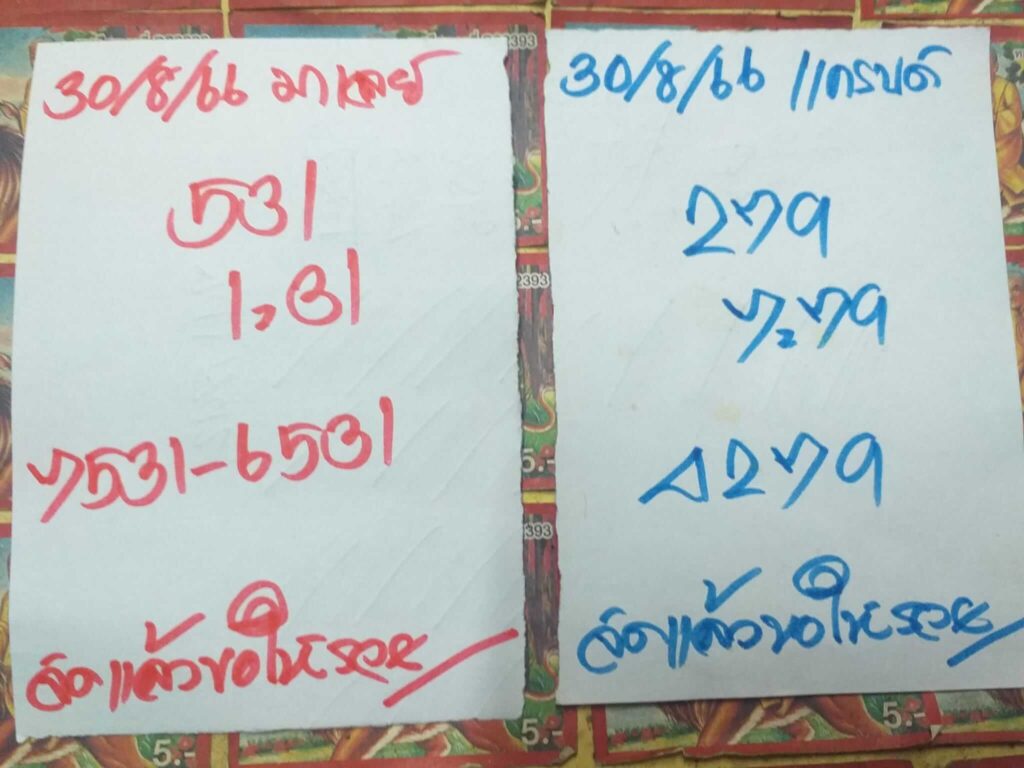 30/8/66 มาเลย์
531
1,31
7531-6531
จัดแล้วขอให้รวย
30/8/66 แกรนด์
279
7,79
4279
จัดแล้วขอให้รวย
2393
2393
393
5.-
5.-
5.-
5.-